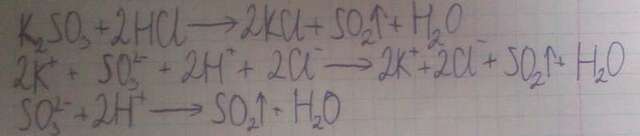 K₂SO₃ + 2HCl → 2KCl + SO₂↑ + H₂O
2K⁺ + SO₃²⁻ + 2H⁺ + 2Cl⁻ → 2K⁺ + 2Cl⁻ + SO₂↑ + H₂O
SO₃²⁻ + 2H⁺ → SO₂↑ + H₂O